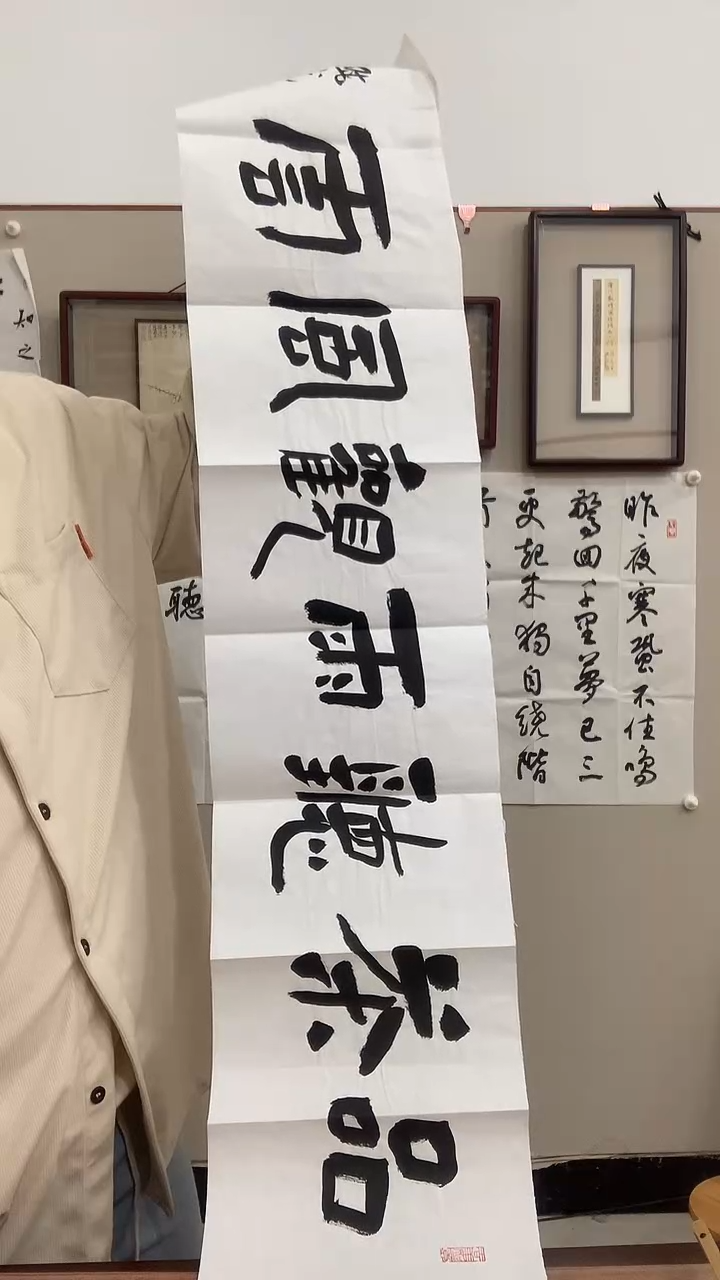 品茶聽雨觀周商
昨夜寒蛩不住鳴
驚回千里夢已三
更起来獨自繞階
行
聽
知之